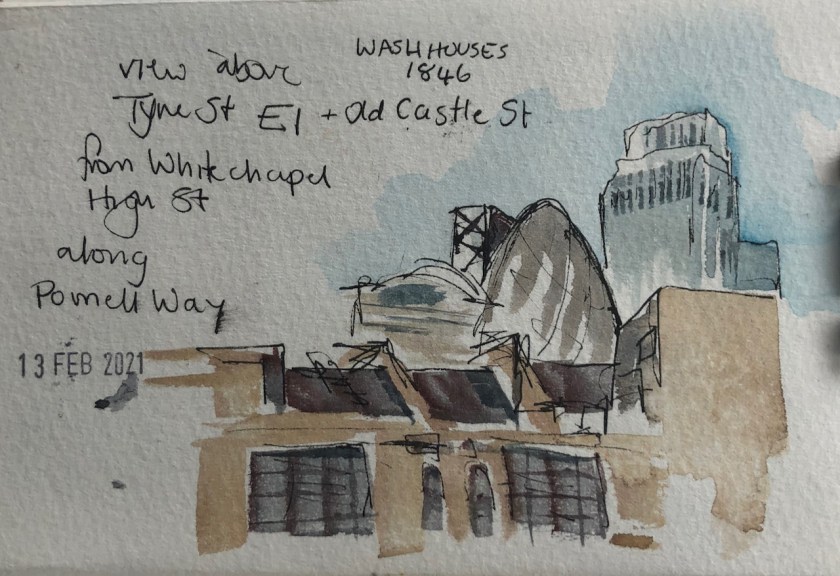 view above
WASHHOUSES
1846
Tyne St E1 + Old Castle St
from Whitechapel
High St
along
Pomell Way
13 FEB 2021